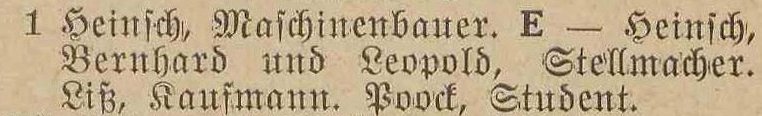 1 Heinsch, Maschinenbauer. E — Heinsch,
Bernhard und Leopold, Stellmacher.
Liß, Kaufmann. Poock, Student.